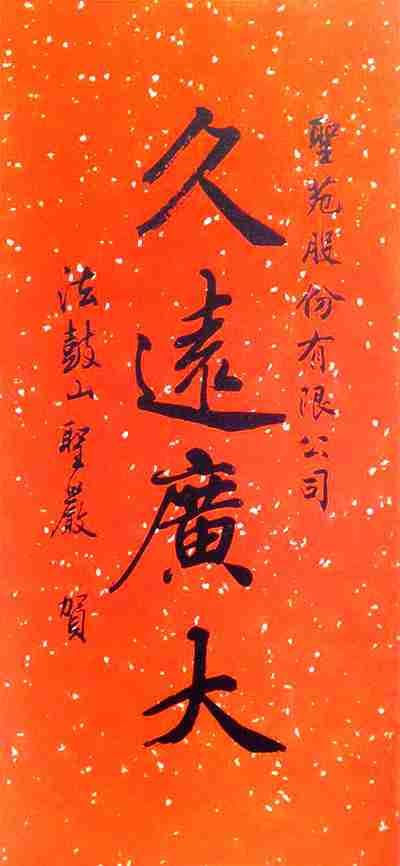 聖苑股份有限公司
久遠廣大
法鼓山聖嚴 賀